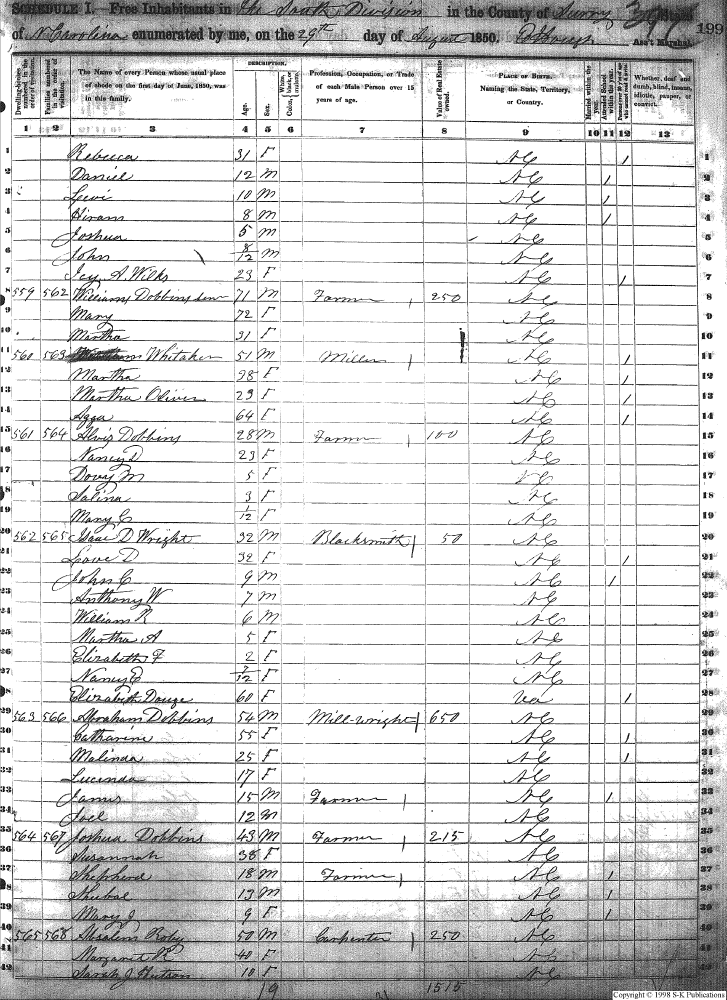 SCHEDULE I.—Free Inhabitants in The South Division in the County of Surry 397 199
of N Carolina enumerated by me, on the 29th day of August 1850. Ass't Marshal.
Dwelling-houses numbered in the order of visitation.
Families numbered in the order of visitation.
The Name of every Person whose usual place of abode on the first day of June, 1850, was in this family.
DESCRIPTION.
Age.
Sex.
Color, White, black, or mulatto.
Profession, Occupation, or Trade of each Male Person over 15 years of age.
Value of Real Estate owned.
PLACE OF BIRTH. Naming the State, Territory, or Country.
Married within the year.
Attended School within the year.
Persons over 20 y'rs of age who cannot read & write.
Whether deaf and dumb, blind, insane, idiotic, pauper, or convict.
1 2 3 4 5 6 7 8 9 10 11 12 13
1 Rebecca 31 F NC / 1
2 Daniel 12 M NC / 2
3 Levi 10 M NC / 3
4 Hiram 8 M NC / 4
5 Joshua 5 M NC 5
6 John 8/12 M NC 6
7 Icy A. Wilks 23 F NC / 7
8 559 562 Williams Dobbins Sen 71 M Farmer 250 NC 8
9 Mary 72 F NC 9
10 Martha 31 F NC 10
11 560 563 Whitaker 51 M Miller NC / 11
12 Martha 38 F NC / 12
13 Martha Oliver 23 F NC / 13
14 Agga 64 F NC / 14
15 561 564 Alvis Dobbins 28 M Farmer 100 NC 15
16 Nancy D 23 F NC 16
17 Dovy M 5 F NC 17
18 Salina 3 F NC 18
19 Mary C 1/12 F NC 19
20 562 565 Isaac D Wright 32 M Blacksmith 50 NC 20
21 Love D 32 F NC / 21
22 John C 9 M NC / 22
23 Anthony W 7 M NC 23
24 William R 6 M NC 24
25 Martha A 5 F NC 25
26 Elizabeth F 2 F NC 26
27 Nancy E 2/12 F NC 27
28 Elizabeth 60 F Va / 28
29 563 566 Abraham Dobbins 54 M Mill-wright 650 NC 29
30 Catharine 55 F NC / 30
31 Malinda 25 F NC / 31
32 Lucinda 17 F NC 32
33 James 15 M Farmer NC / 33
34 Joel 12 M NC 34
35 564 567 Joshua Dobbins 43 M Farmer 215 NC 35
36 Susannah 38 F NC 36
37 Shepherd 18 M Farmer NC / 37
38 Shubal 13 M NC / 38
39 Mary J 9 F NC / 39
40 565 568 Absalem Roby 50 M Carpenter 250 NC 40
41 Margaret R 40 F NC 41
42 Sarah J Hutson 10 F NC 42
19 1515
Copyright © 1998 S-K Publications